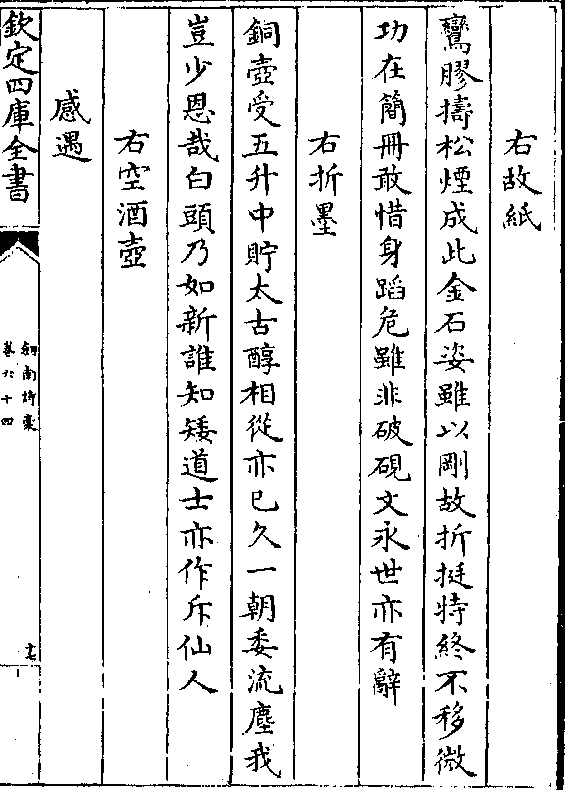 右故紙
鸞膠擣松煙成此金石姿雖以剛故折挺特終不移微
功在簡冊敢惜身蹈危雖非破硯文永世亦有辭
右折墨
銅壺受五升中貯太古醇相從亦已久一朝委流塵我
豈少恩哉白頭乃如新誰知矮道士亦作斥仙人
右空酒壺
感遇
欽定四庫全書
劒南詩稾
卷六十四